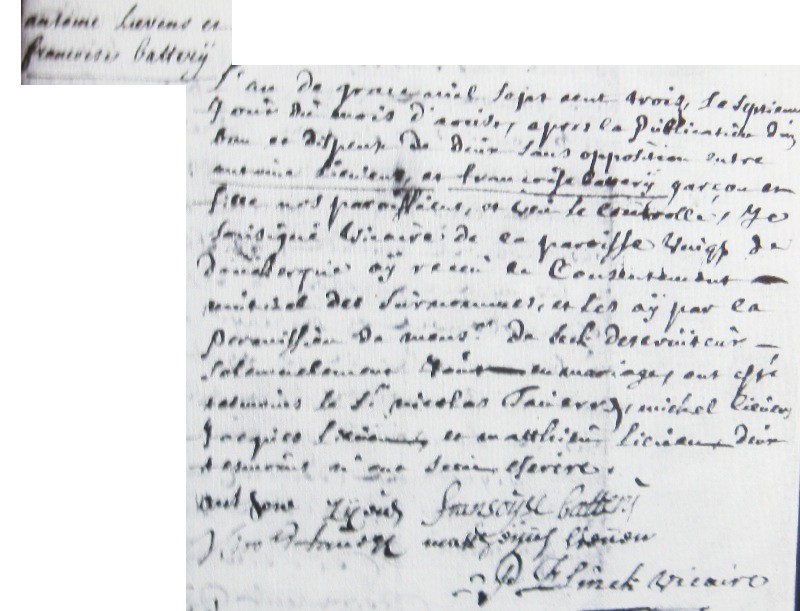 antoine Lievens et
francoise battery
L'an de grace mil sept cent trois, le septieme
Jour du mois d'aoust, apres la Publication d'un
Ban et dispense de deux sans opposition entre
antoine Lievens, et francoise battery garçon et
fille nos paroissiens, et veu le controlle, Je
sousigné vicaire de la paroisse de
aÿ receu le Consentement
mutuel des surnommes, et les aÿ par la
permission de mons.r de beck deserviteur
solemnelement en mariage, ont esté
tesmoins le S.r nicolas michel lievens
Jacques Lievens et matthieu lievens deux
tesmoins n'ont sceu escrire.
fransoÿse batterÿ
lieven
vicaire